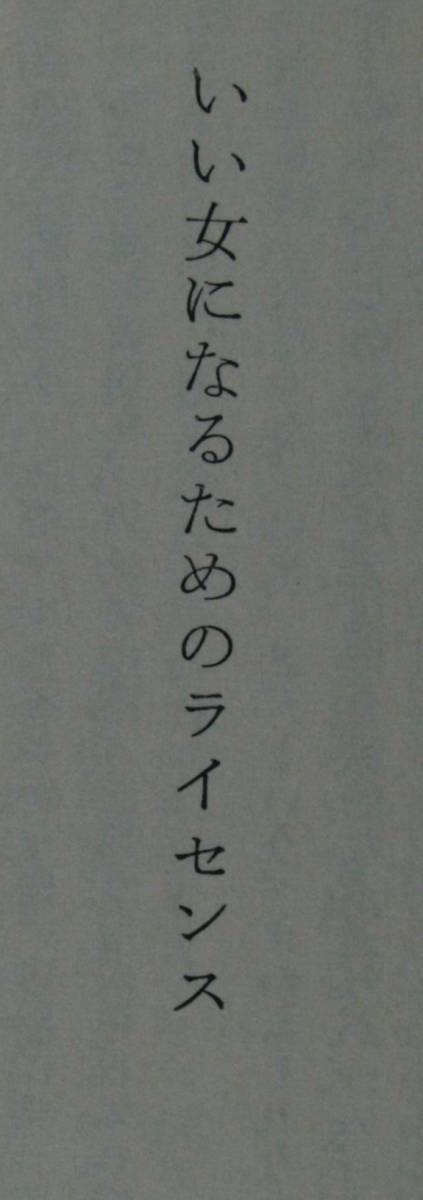 いい女になるためのライセンス